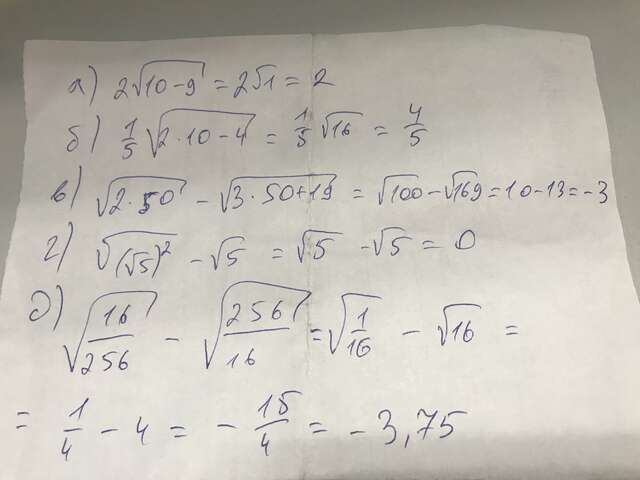 а) 2√10-9 = 2√1 = 2
б) 1/5 √2·10-4 = 1/5 √16 = 4/5
в) √2·50 - √3·50+19 = √100 - √169 = 10-13 = -3
г) √(√5)² - √5 = √5 - √5 = 0
д)
√16/256 - √256/16 = √1/16 - √16 =
= 1/4 - 4 = - 15/4 = - 3,75